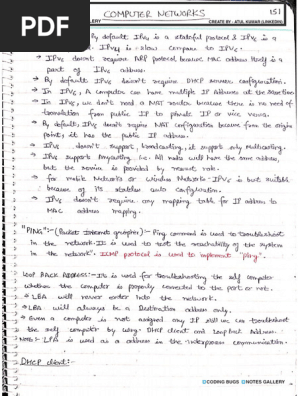 PDF
COMPUTER NETWORKS
151
GALLERY
CREATE BY - ATUL KUMAR (LINKEDIN)
By default IPv4 is a stateful protocol & IPv6 is a
IPv4 is slow compare to IPv6.
IPv6 doesn't requires ARP protocol because MAC address itself is a
part of IPv6 address.
By default IPv6 doesn't require DHCP server configuration.
In IPv6, A computer can have multiple IP Address at the
In IPv6, we don't need a NAT router because there is no need of
translation from public IP to private IP or vice versa.
By default, IPv6 doesn't require NAT configuration because from the origin
point, it has the public IP address.
IPv6 doesn't support, broadcasting, it support only multicasting.
IPv6 supports Anycasting i.e. All nodes will have the same address,
but the service is provided by nearest node.
for mobile Networks or Wireless Networks IPv6 is best suitable
because of its stateless auto configuration.
IPv6 doesn't require any mapping table for IP address to
MAC address mapping.
"PING":- (Packet Internet groper) :- Ping command is used to troubleshoot
in the network. It is used to test the reachability of the system
in the network. ICMP protocol is used to implement "ping".
LOOP BACK ADDRESS:- It is used for troubleshooting the self computer
whether the computer is properly connected to the port or not.
LBA will never enter into the network.
LBA will always be a Destination address only.
Even a computer is not assigned any IP still we can troubleshoot
the self computer by using DHCP client and Loop back Address.
NOTE:- LBA is used as a address in the interprocess communication.
DHCP client:-
CODING BUGS
NOTES GALLERY